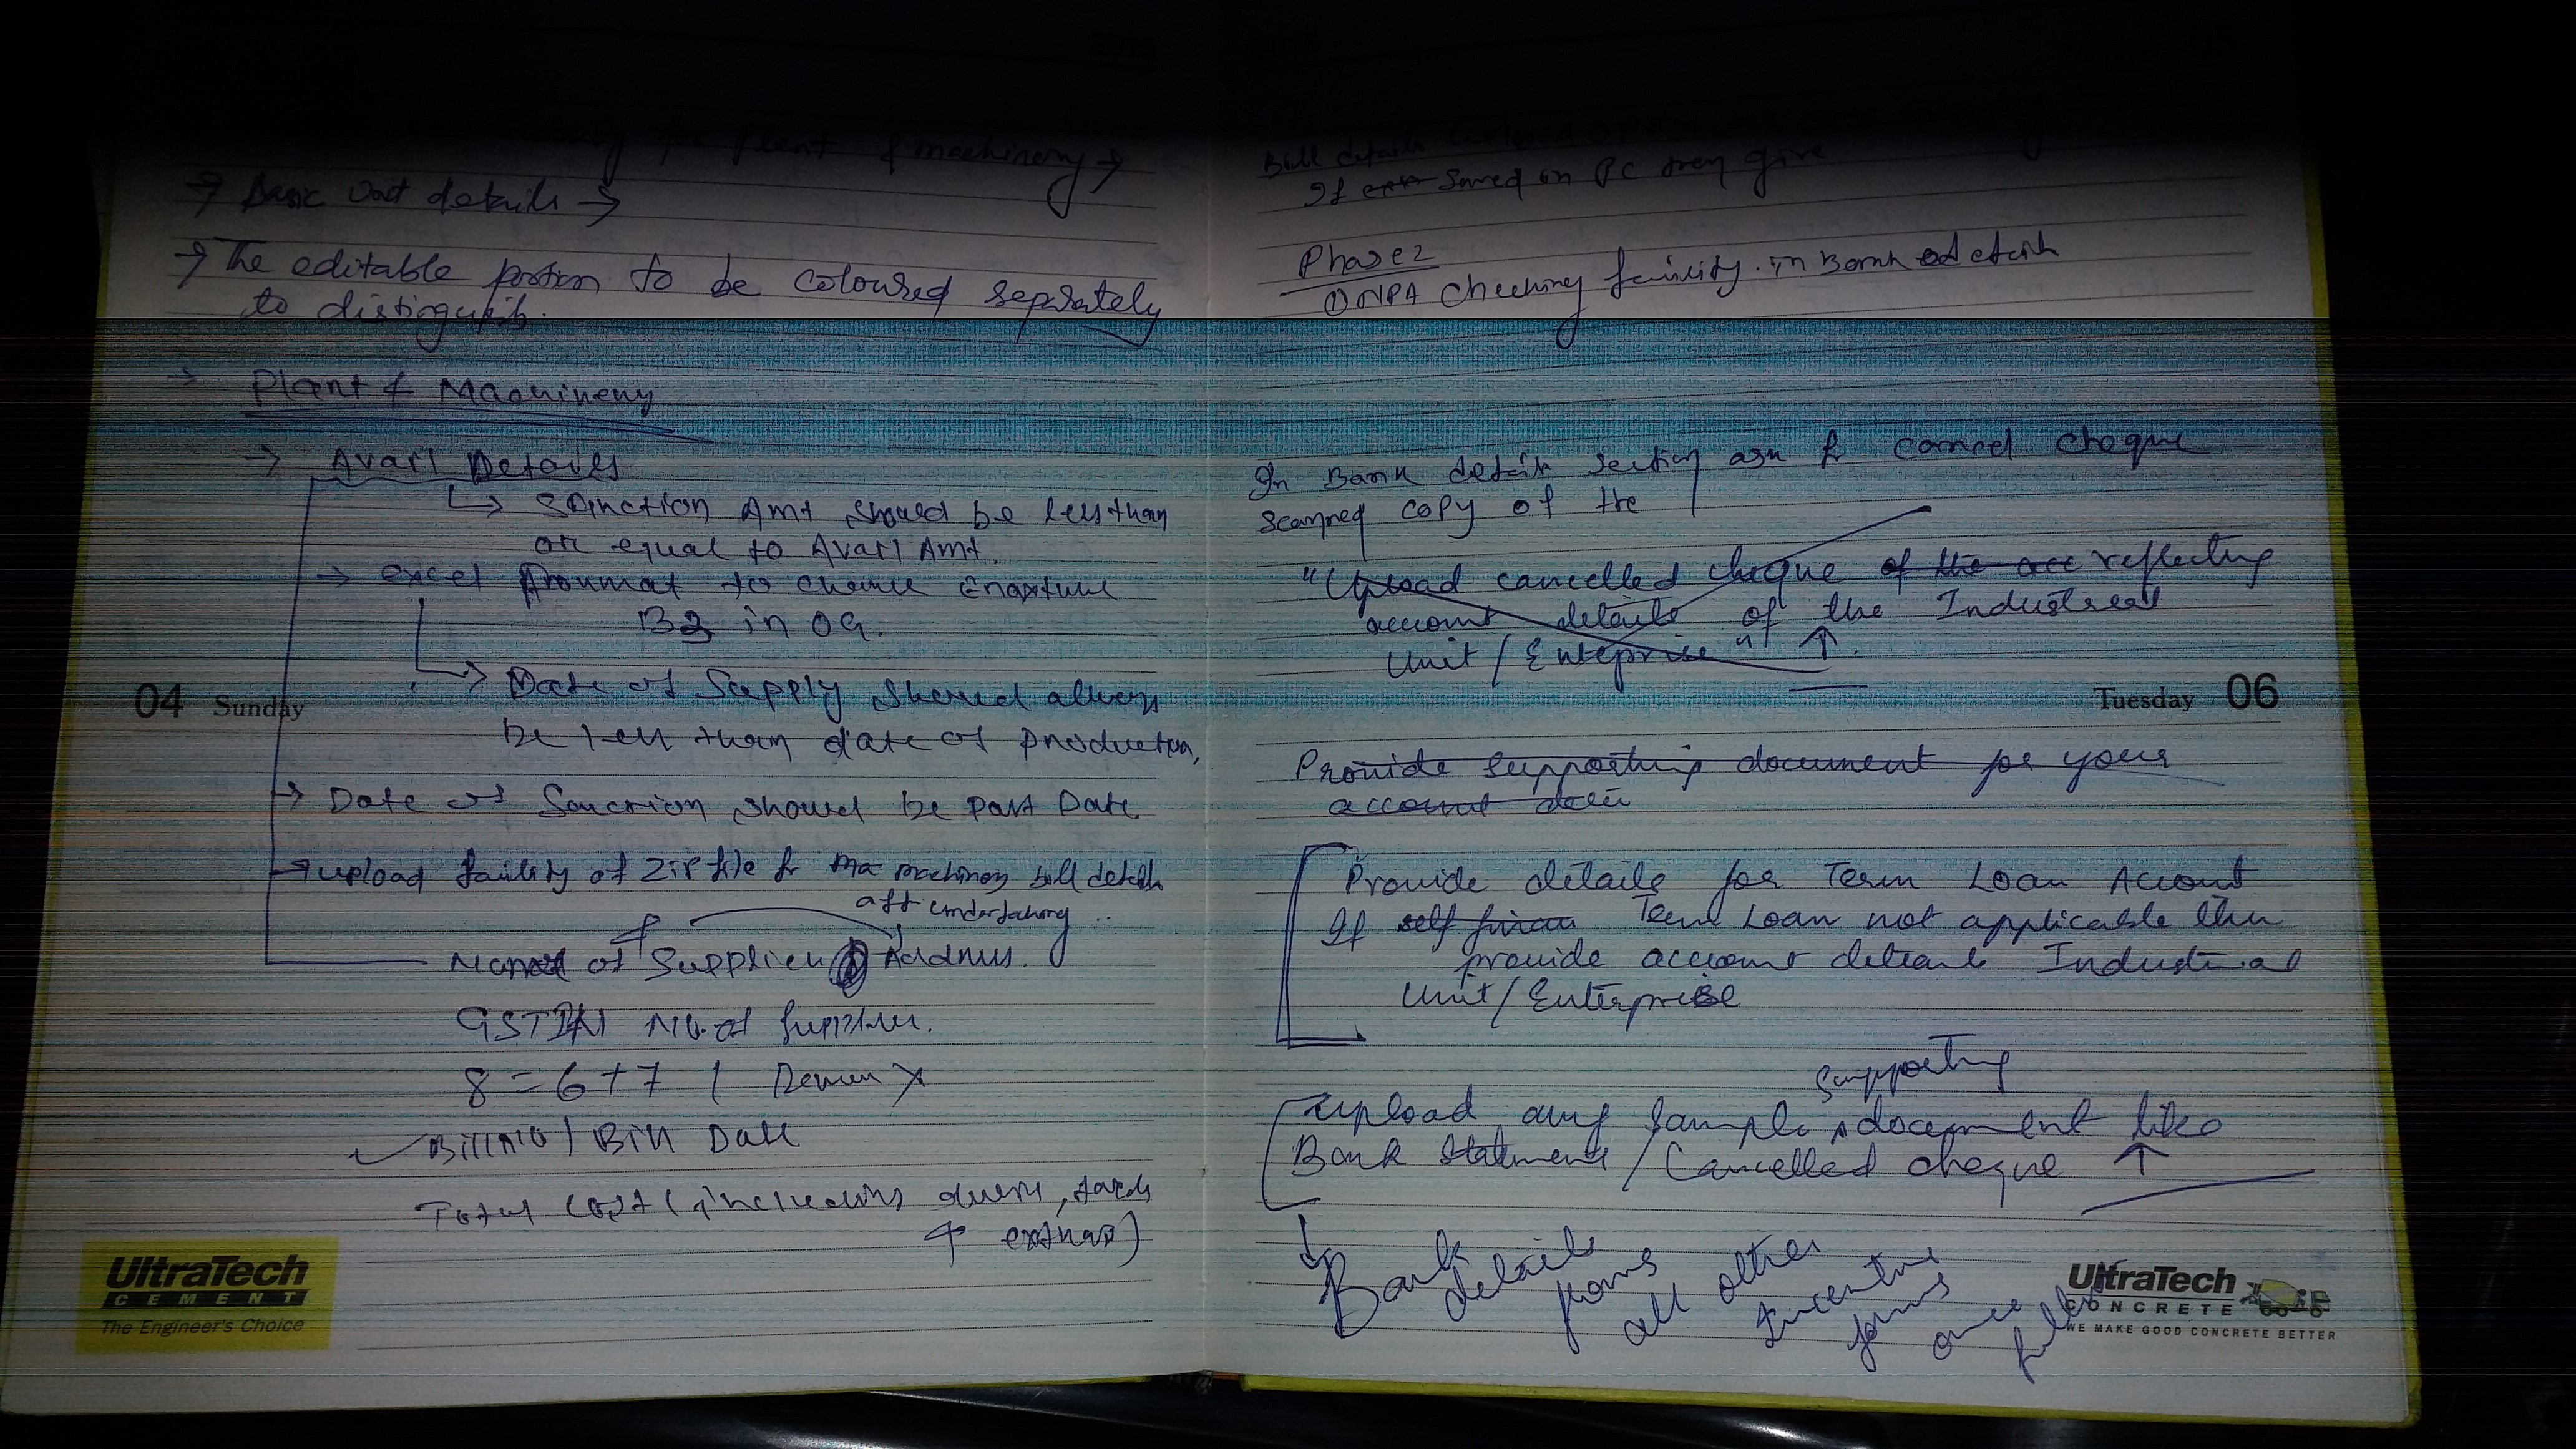 for Plant & machinery →
→ Basic Unit details →
→ The editable portion to be coloured seprately
to distinguish.
→ Plant & Machinery
→ Avail Details
↳ Sanction Amt should be less than
or equal to Avail Amt.
→ excel format to change
B2 in OG.
→ Date of Supply should always
be less than date of production,
04 Sunday
→ Date of Sanction should be past Date.
→ upload facility of zip file for machinery bill details
undertaking ..
Name of Supplier & Address.
GSTIN No. of Supplier.
8 = 6 + 7 /
Bill No / Bill Date
Total Cost (including duties,
& extras)
UltraTech
CEMENT
The Engineer's Choice
Bill details
If saved on PC then give
Phase 2
① NPA Checking facility in Bank details
In Bank details section ask for cancel cheque
scanned copy of the
"Upload cancelled cheque of the acc reflecting
account details of the Industrial
Unit / Enteprise" ↑
Tuesday 06
Provide supporting document for your
account
Provide details for Term Loan Account
If self finan Term Loan not applicable then
provide account details Industrial
Unit / Enterprise
supporting
upload any sample document like
Bank Statement / Cancelled cheque ↑
Bank details
all other
Incentive
forms
once
UltraTech
CONCRETE
WE MAKE GOOD CONCRETE BETTER